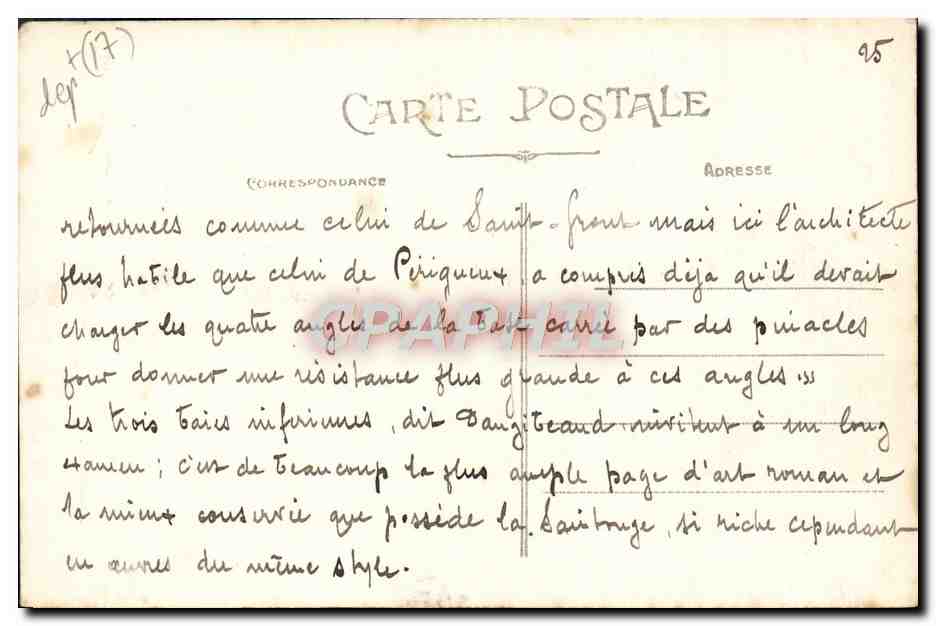 dep^t (17)
25
CARTE POSTALE
CORRESPONDANCE
ADRESSE
retournées comme celui de Saint-Front mais ici l'architecte
plus habile que celui de Périgueux a compris déja qu'il devait
charger les quatre angles de la base carrée par des pinacles
pour donner une résistance plus grande à ces angles.»
Les trois baies inférieures, dit Dangibeaud invitent à un long
examen ; c'est de beaucoup la plus ample page d'art roman et
la mieux conservée que possède la Saintonge, si riche cependant
en œuvres du même style.
CPAPHIL